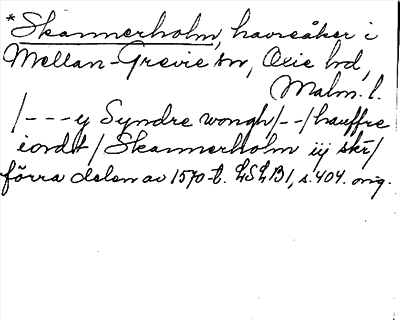 *Skannerholm, havreåker i
Mellan-Grevie sn, Oxie hd,
Malm. l.
/---y Syndre wongh/--/hauffre
iordt/Skannerholm iij skr/
förra delen av 1570-t. LSLB1, s. 404. orig.